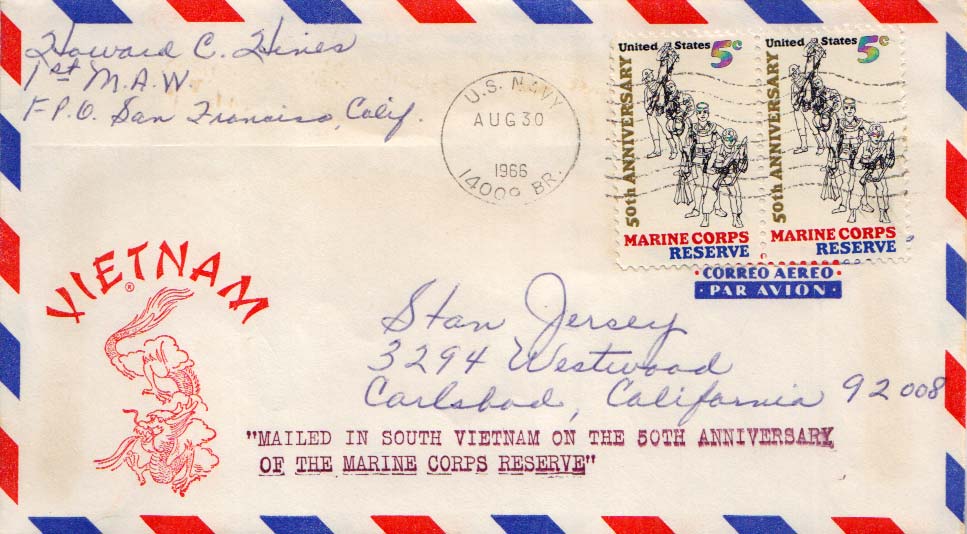 Howard C. Hines
1st M.A.W.
F.P.O. San Francisco, Calif.
U.S. NAVY
AUG 30
1966
14009 BR.
United States 5c
50th ANNIVERSARY
MARINE CORPS
RESERVE
United States 5c
50th ANNIVERSARY
MARINE CORPS
RESERVE
CORREO AEREO
PAR AVION
VIETNAM
®
Stan Jersey
3294 Westwood
Carlsbad, California 92008
"MAILED IN SOUTH VIETNAM ON THE 50TH ANNIVERSARY
OF THE MARINE CORPS RESERVE"